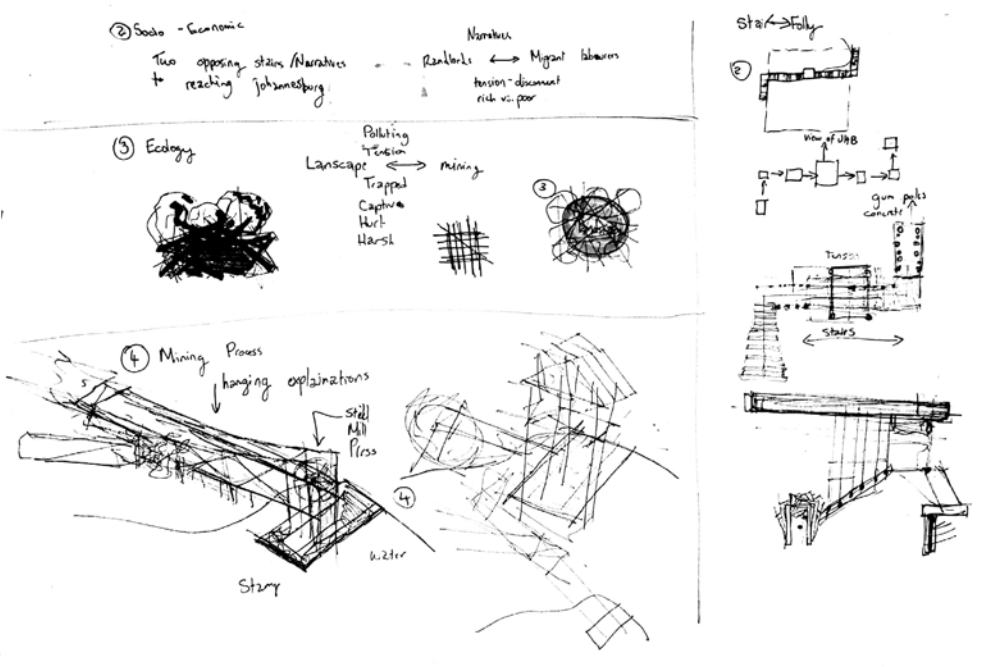 ② Socio-Economic
Two opposing stairs/Narratives
to reaching johannesburg
Narratives
Randlords ↔ Migrant labourers
tension - disconnect
rich vs. poor
③ Ecology
Polluting
Tension
Lanscape ↔ mining
Trapped
Captive
Hurt
Harsh
③
④ Mining Process
hanging explainations
Mill
Stamp
water
④
Stair ↔ Folly
②
view of JHB
gum poles
concrete
Stairs